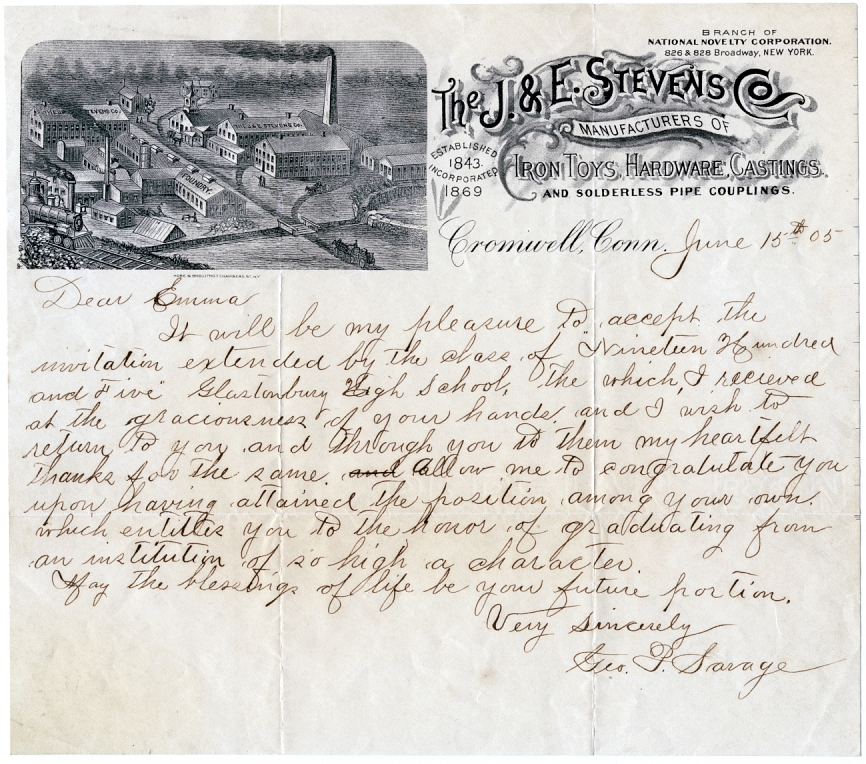 BRANCH OF
NATIONAL NOVELTY CORPORATION.
826 & 828 Broadway, NEW YORK.
The J. & E. STEVENS CO.
MANUFACTURERS OF
ESTABLISHED
1843
INCORPORATED
1869
IRON TOYS, HARDWARE, CASTINGS,
AND SOLDERLESS PIPE COUPLINGS.
THE J. & E. STEVENS CO.
FOUNDRY
Cromwell, Conn. June 15th 05
Dear Emma
It will be my pleasure to accept the
invitation extended by the class of "Nineteen Hundred
and Five" Glastonbury High School, the which, I recieved
at the graciousness of your hands, and I wish to
return to you and through you to them my heartfelt
thanks for the same. and Allow me to congratutate you
upon having attained the position among your own.
which entitles you to the honor of graduating from
an institution of so high a character.
May the blessings of life be your future portion.
Very Sincerely
Geo. P. Savage